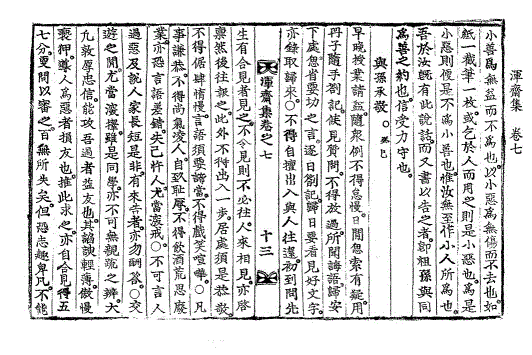 渾齋集 卷七
小善爲無益而不爲也以小惡爲無傷而不去也如
紙一截筆一枚或乞於人而用之則是小惡也爲其
小惡則便是不爲小善也惟汝無至作小人所爲也
吾於汝旣有此說話而又書以告之者卽祖孫與同
爲善之約也信受力守也
與孫承敬○
早晚授業請益隨衆例不得怠慢日間思索有疑用
冊子隨手劄記俟見質問不得放過所聞誨語歸安
下處思省要切之言逐日劄記歸日要看見好文字
亦錄取歸來○不得自擅出入與人往還初到問先
渾齋集卷之七 十三
生有合見者見之不令見則不必往人來相見亦啓
稟然後往報之此外不得出入一步居處須是恭敬
不得倨肆惰慢言語須要諦當不得戲笑喧嘩○凡
事謙恭不得尙氣凌人自取恥辱不得飮酒荒思廢
業亦恐言語差錯失己忤人尤當深戒○不可言人
過惡及說人家長短是非有來告者亦勿酬答○交
遊之間尤當深擇雖是同學亦不可無親疏之辨大
凡敦厚忠信能攻吾過者益友也其諂諛輕薄傲慢
褻狎導人爲惡者損友也推此求之亦自合見得五
七分更問以審之百無所失矣但恐志趣卑凡不能